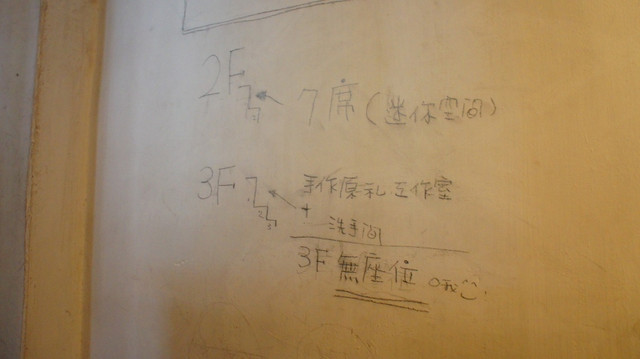 2F 7席(迷你空間)
3F 手作原礼工作室
+
洗手間
3F無座位 哦